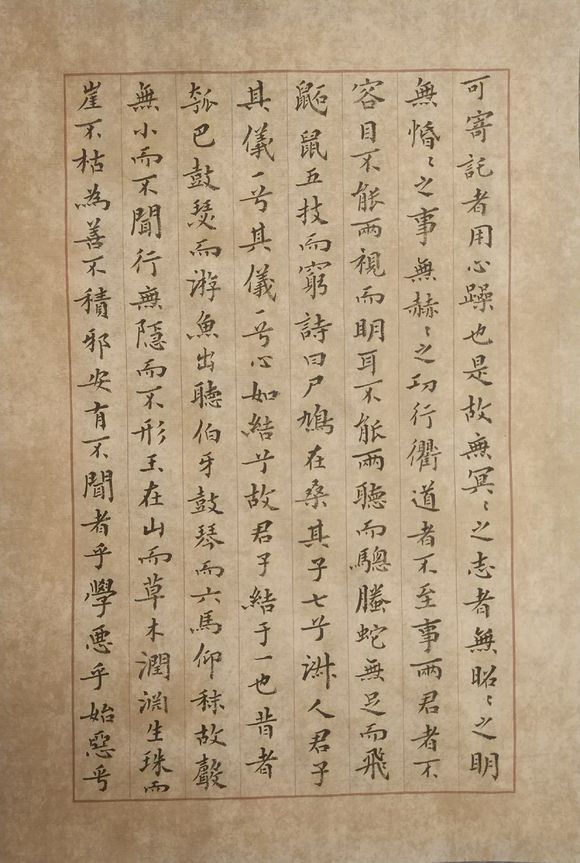 可寄託者用心躁也是故無冥〻之志者無昭〻之明
無惛〻之事無赫〻之功行衢道者不至事兩君者不
容目不能兩視而明耳不能兩聽而聰螣蛇無足而飛
鼫鼠五技而窮詩曰尸鳩在桑其子七兮淑人君子
其儀一兮其儀一兮心如結兮故君子結于一也昔者
瓠巴鼓瑟而游魚出聽伯牙鼓琴而六馬仰秣故聲
無小而不聞行無隱而不形玉在山而草木潤淵生珠而
崖不枯為善不積邪安有不聞者乎學惡乎始惡乎